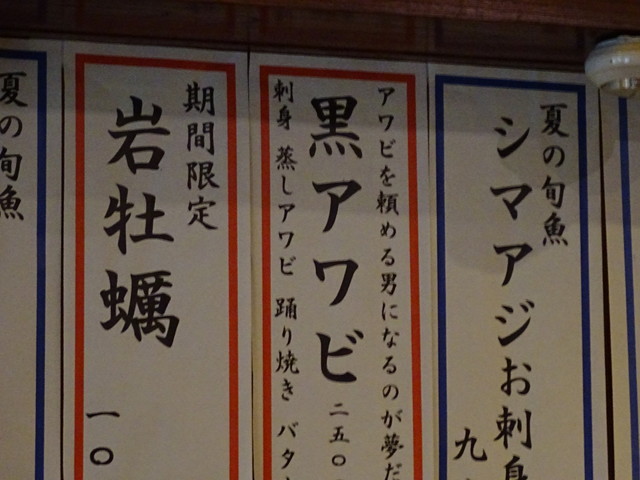 夏の旬魚
シマアジお刺身
九
アワビを頼める男になるのが夢だ
黒アワビ 二五〇
刺身 蒸しアワビ 踊り焼き バタ
期間限定
岩牡蠣
一〇
夏の旬魚